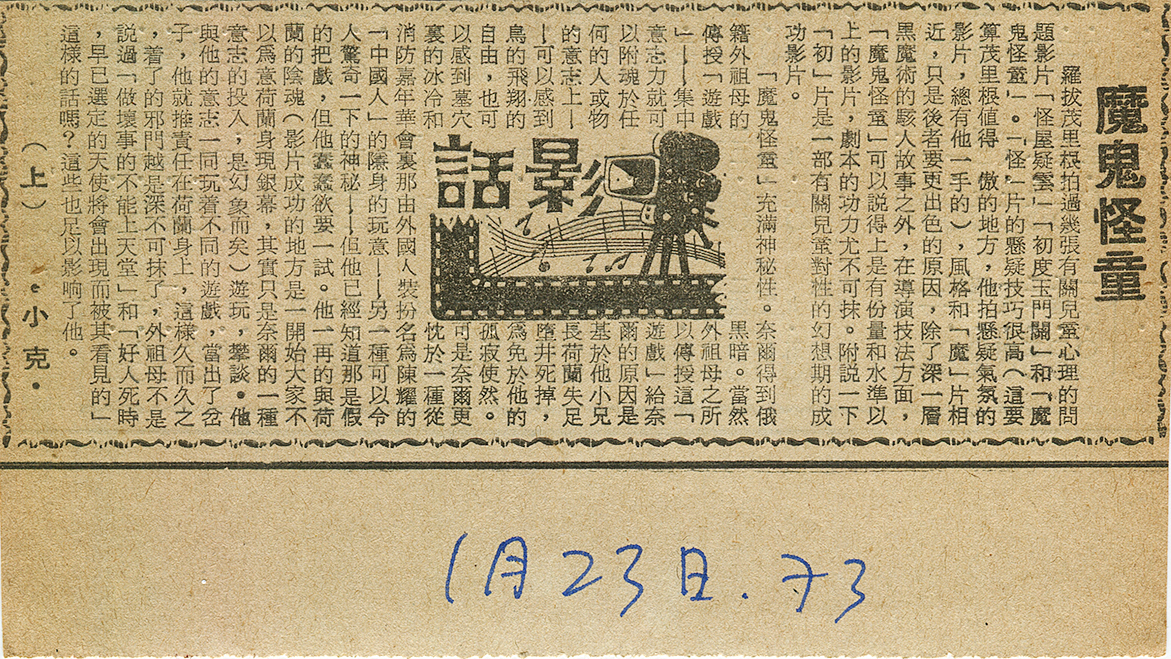 魔鬼怪童
羅拔茂里根拍過幾張有關兒童心理的問
題影片「怪屋疑雲」「初度玉門關」和「魔
鬼怪童」。「怪」片的懸疑技巧很高(這要
算茂里根值得 傲的地方,他拍懸疑氣氛的
影片,總有他一手的),風格和「魔」片相
近,只是後者要更出色的原因,除了深一層
黑魔術的駭人故事之外,在導演技法方面,
「魔鬼怪童」可以說得上是有份量和水準以
上的影片,劇本的功力尤不可抹。附説一下
「初」片是一部有關兒童對性的幻想期的成
功影片。
「魔鬼怪童」充滿神秘性。奈爾得到俄
籍外祖母的
傳授「遊戲
」——集中
意志力就可
以附魂於任
何的人或物
的意志上—
—可以感到
鳥的飛翔的
自由,也可
以感到墓穴
裏的冰冷和
影話
黑暗。當然
外祖母之所
以傳授這「
遊戲」給奈
爾的原因是
基於他小兄
長荷蘭失足
墮井死掉,
為免於他的
孤寂使然。
可是奈爾更
忱於一種從
消防嘉年華會裏那由外國人裝扮名為陳耀的
「中國人」的隱身的玩意——另一種可以令
人驚奇一下的神秘——但他已經知道那是假
的把戲,但他蠢蠢欲要一試。他一再的與荷
蘭的陰魂(影片成功的地方是一開始大家不
以為意荷蘭身現銀幕,其實只是奈爾的一種
意志的投入,是幻象而矣)遊玩,攀談。他
與他的意志一同玩着不同的遊戲,當出了岔
子,他就推責任在荷蘭身上,這樣久而久之
,着了的邪門越是深不可抹了,外祖母不是
說過「做壞事的不能上天堂」和「好人死時
,早已選定的天使將會出現而被其看見的」
這樣的話嗎?這些也足以影响了他。
(上)·小克·
1月23日.73